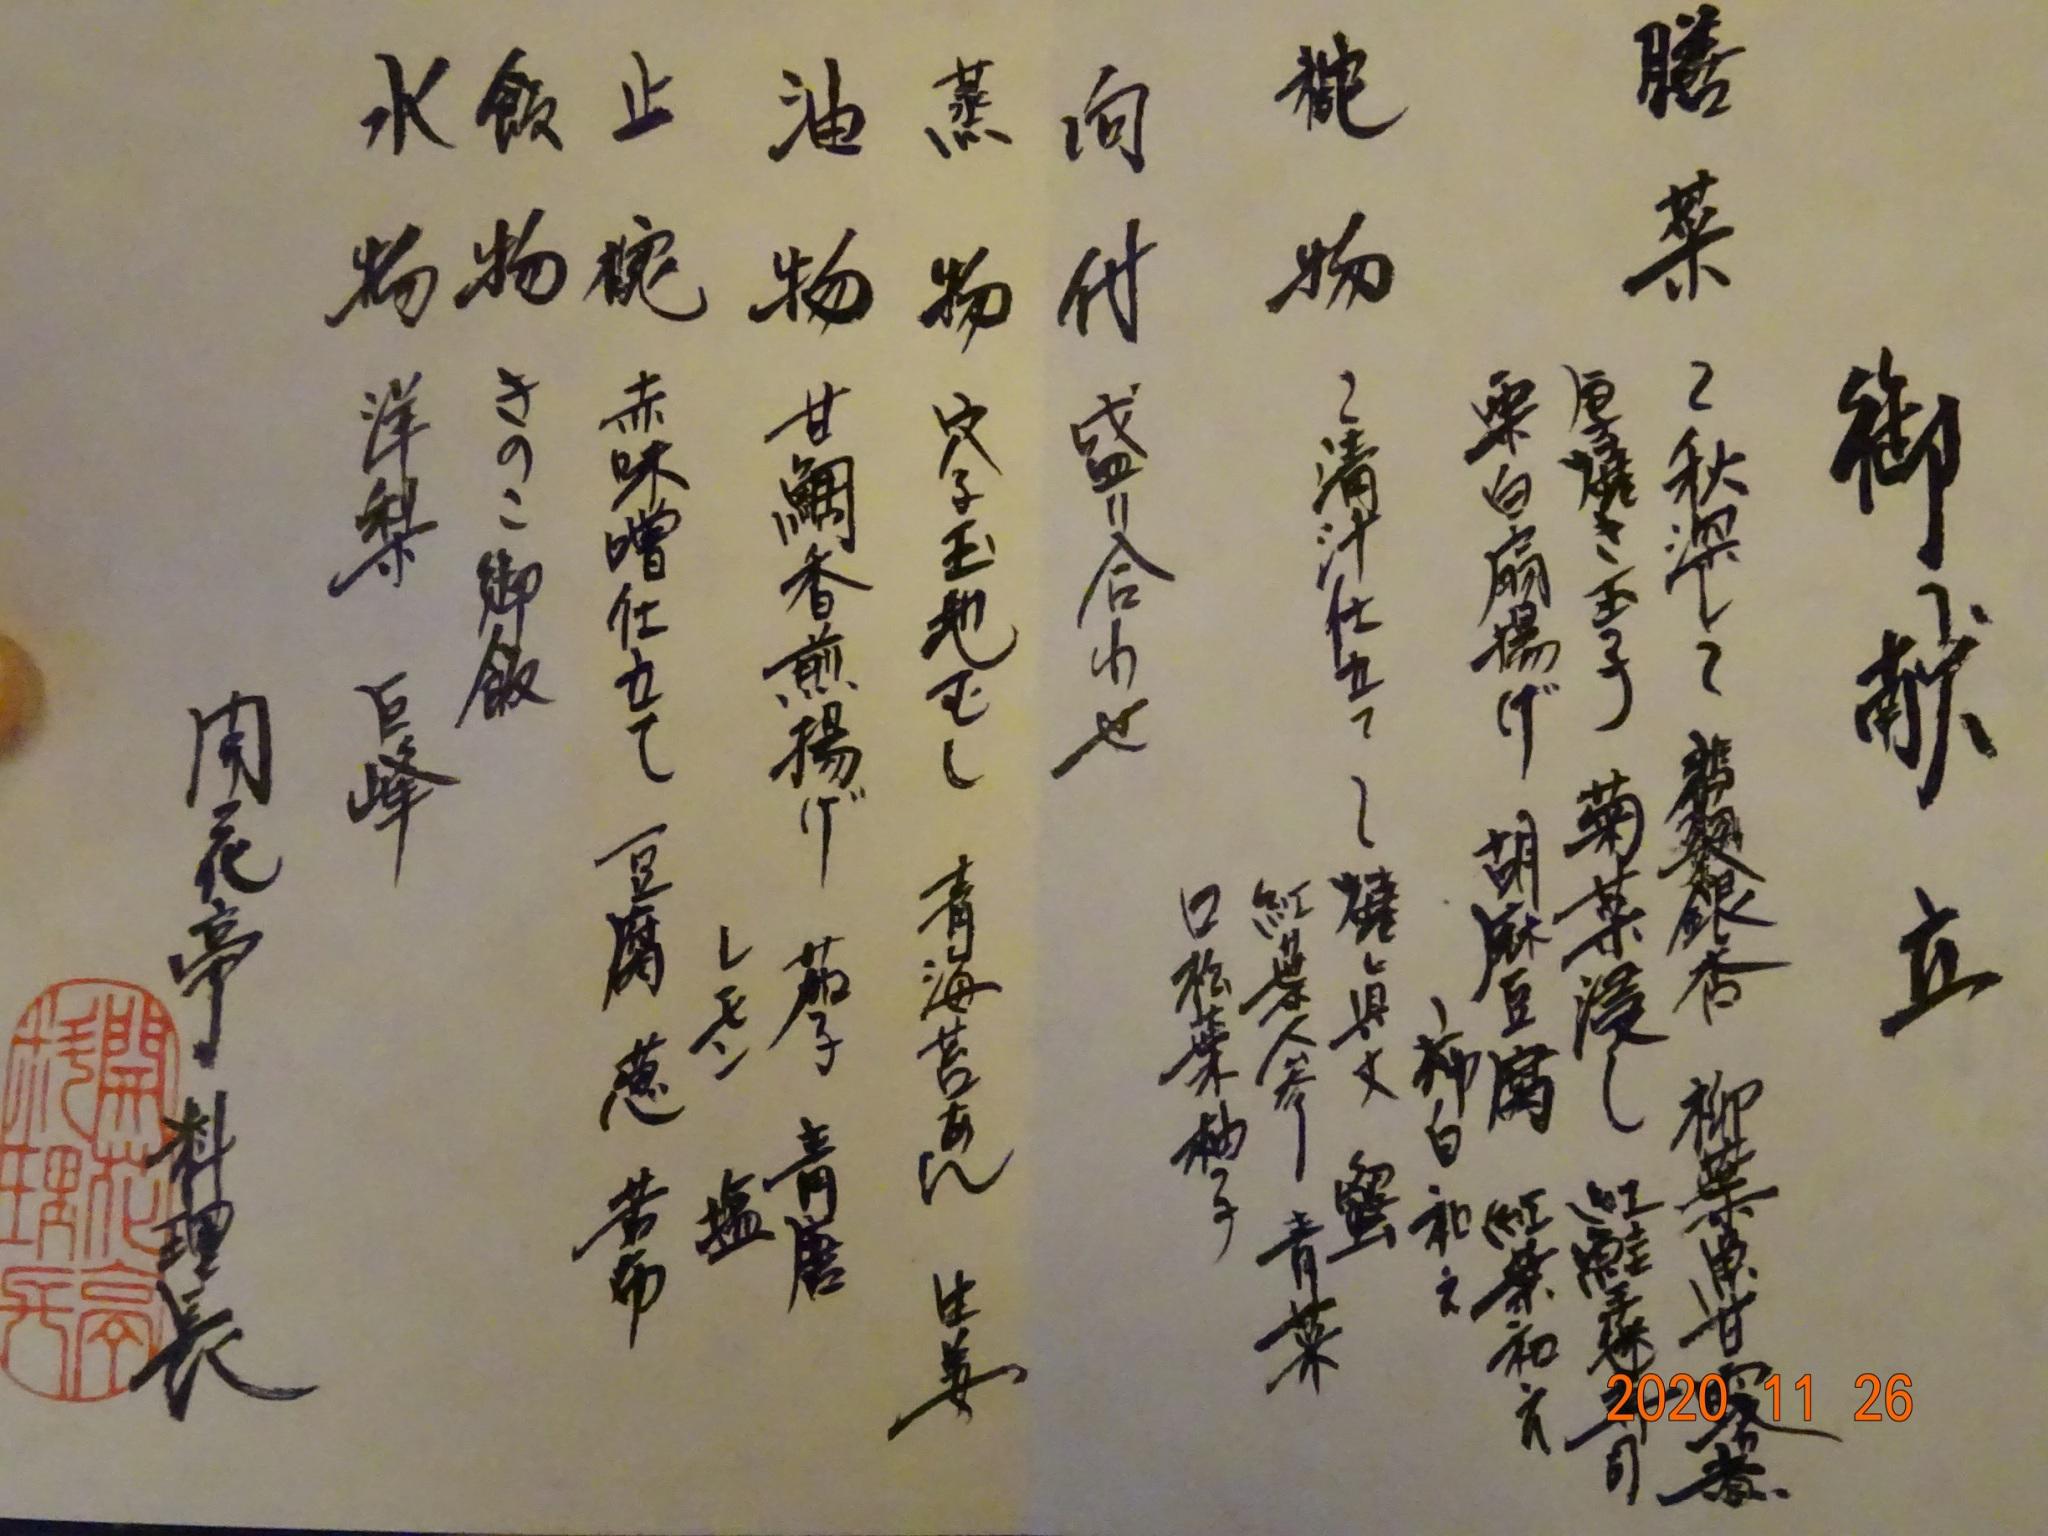 御献立
膳菜
〜秋深し〜 翡翠銀杏 柳葉魚甘露煮
厚焼き玉子 菊菜浸し 紅鮭手綱寿司
栗白扇揚げ 胡麻豆腐 紅葉和え
柿白和え
椀物
〜清汁仕立て〜 焼真丈 蟹
紅葉人参 青菜
口松葉柚子
向付
盛り合わせ
蒸物
穴子玉地むし 青海苔あん 生姜
油物
甘鯛香煎揚げ 茄子 青唐
レモン 塩
止椀
赤味噌仕立て 豆腐 葱 若布
飯物
きのこ御飯
水物
洋梨 巨峰
開花亭 料理長
開花亭
料理長
2020 11 26